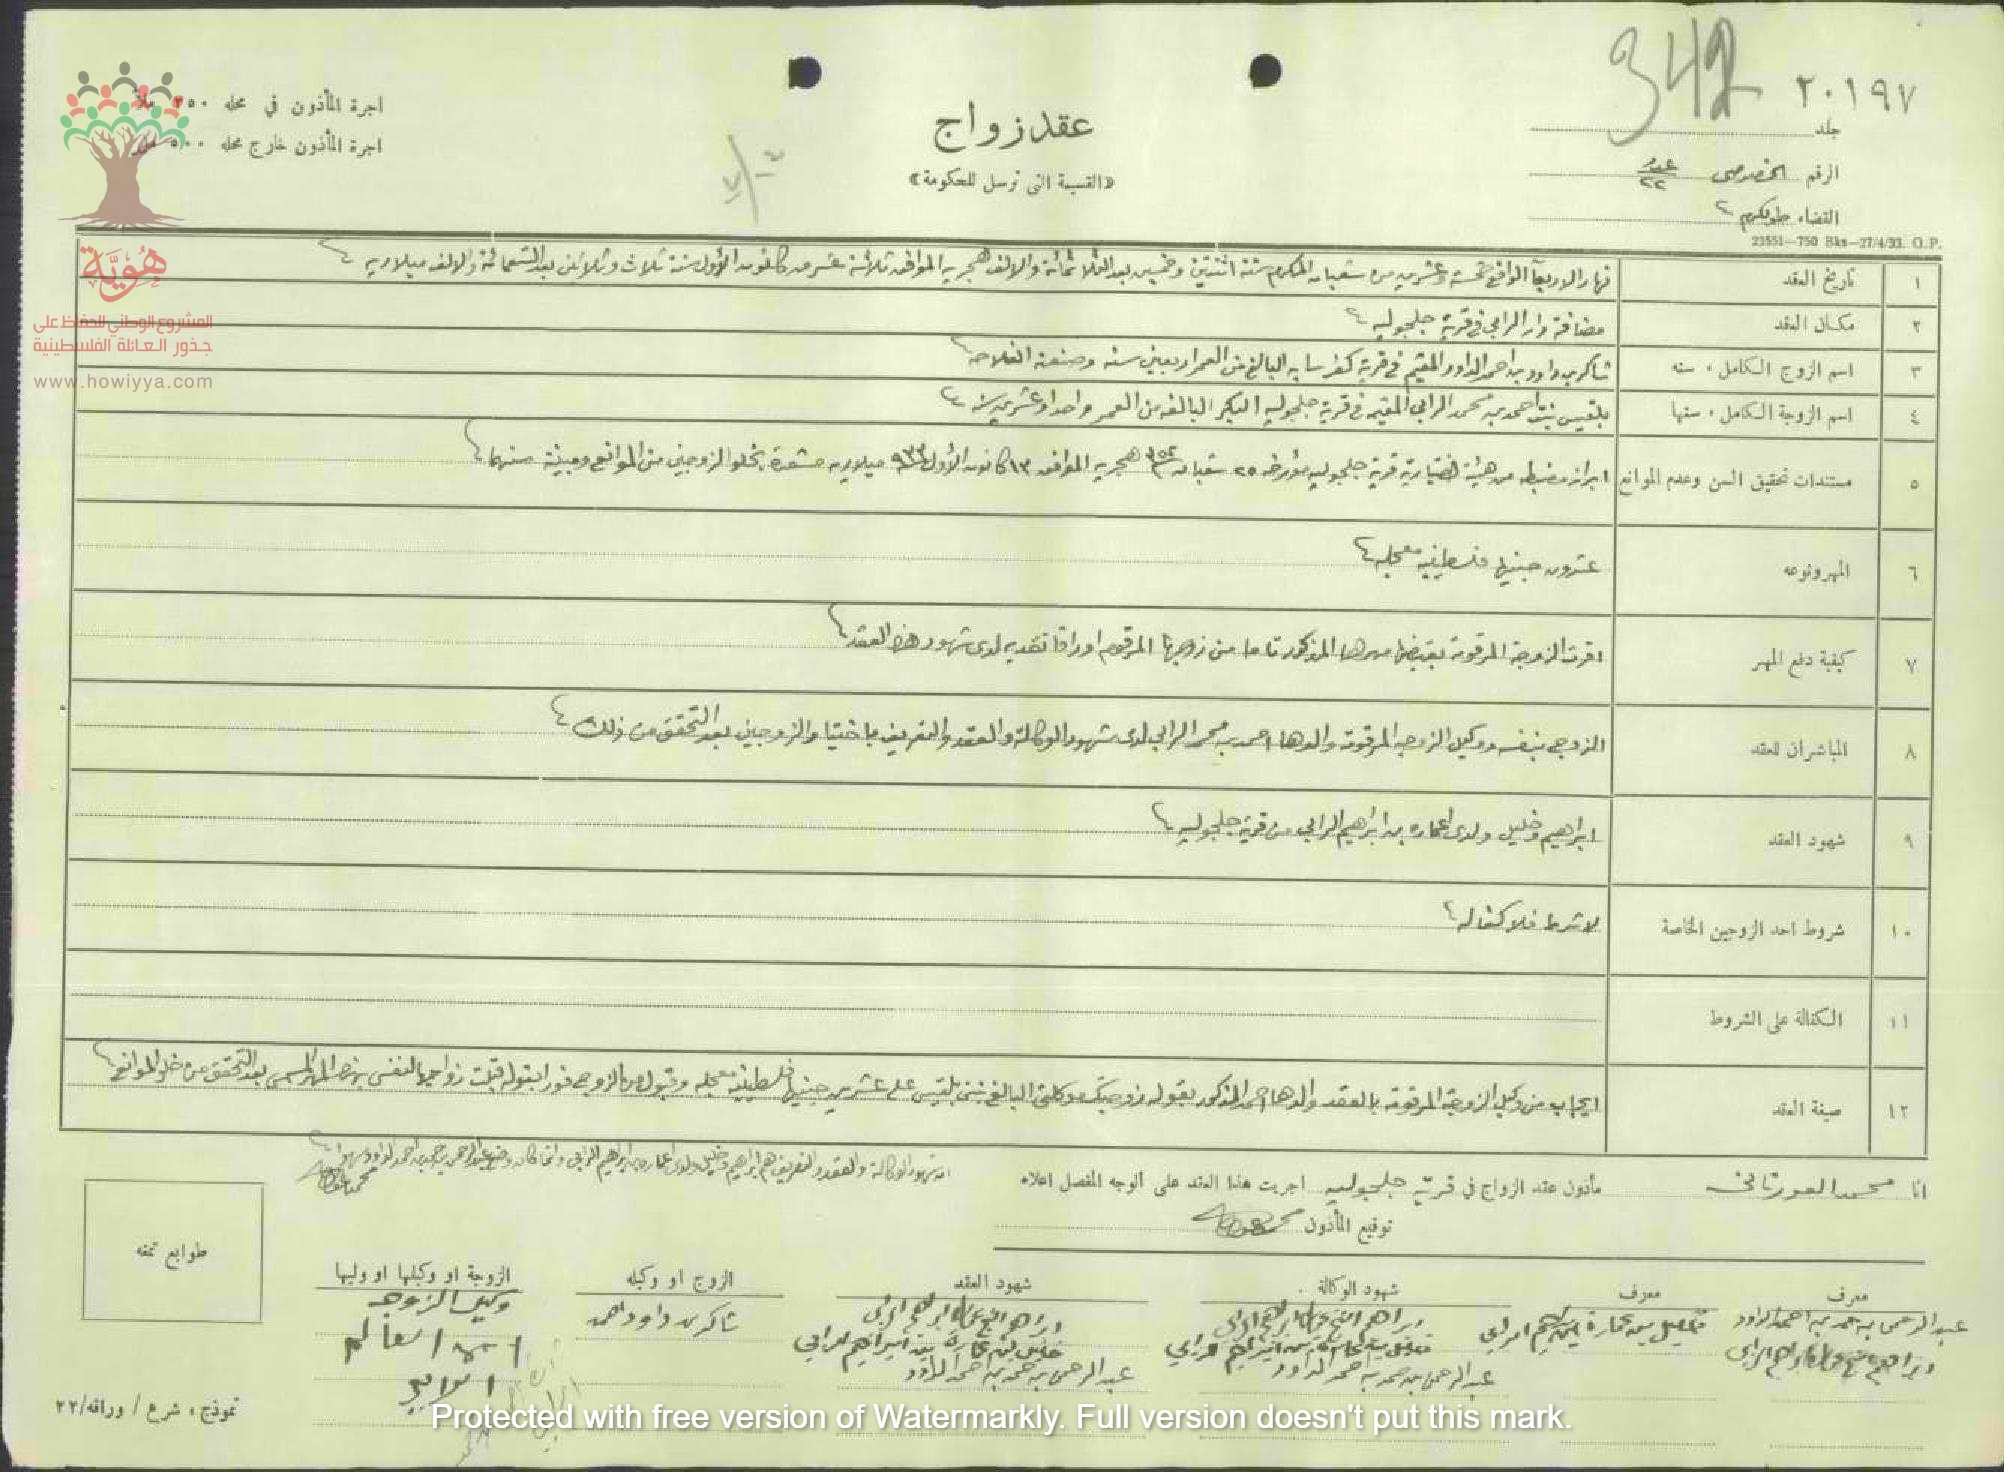 342
٢٠١٩٧
جلد
الرقم الخصوصي عدد ٢٢
القضاء طولكرم
23551—750 Bks—27/4/33. O.P.
عقد زواج
«القسيمة التي ترسل للحكومة»
اجرة المأذون في محله ٢٥٠ ملا
اجرة المأذون خارج محله ٥٠٠ ملا
هُويَّة
المشروع الوطني للحفاظ على
جذور العائلة الفلسطينية
www.howiyya.com
١ تاريخ العقد نهار الاربعآ الواقع خمسة وعشرين من شعبان المكرم سنة اثنتين وخمسين بعد الثلاثمائة والالف هجريه الموافق ثلاثة عشر من كانون الأول سنة ثلاث وثلاثين بعد التسعمائة والالف ميلاديه
٢ مكان العقد مضافة دار الرابي في قرية جلجوليه
٣ اسم الزوج الكامل، سنه شاكر بن داود بن احمد الداود المقيم في قرية كفرسابا البالغ من العمر اربعين سنه وصنعته الفلاحه
٤ اسم الزوجة الكامل، سنها بلقيس بنت احمد بن محمد الرابي المقيمه في قرية جلجوليه البكر البالغه من العمر واحد وعشرين سنه
٥ مستندات تحقيق السن وعدم الموانع ابراز مضبطه من هيئة اختيارية قرية جلجوليه مؤرخه ٢٥ شعبان سنة ٣٥٢ هجريه الموافق ١٣ كانون الأول سنة ٩٣٣ ميلاديه مشعرة بخلو الزوجين من الموانع ومبينة سنهما
٦ المهر ونوعه عشرون جنيها فلسطينيه معجله
٧ كيفية دفع المهر اقرت الزوجة المرقومة بقبضها مهرها المذكور تاما من زوجها المرقوم اوراقا نقديه لدى شهود هذا العقد
٨ المباشران للعقد الزوج بنفسه ووكيل الزوجه المرقومة والدها احمد بن محمد الرابي لدى شهود الوكالة والعقد والتعريف باختيار الزوجين بعد التحقق من ذلك
٩ شهود العقد ابراهيم وخليل ولدي اعماره بن ابراهيم الرابي من قرية جلجوليه
١٠ شروط احد الزوجين الخاصة لا شرط فلا كفاله
١١ الكفالة على الشروط
١٢ صيغة العقد ايجاب من وكيل الزوجة المرقومة بالعقد والدها احمد المذكور بقوله زوجتك موكلتي البالغ بنتي بلقيس على عشرين جنيها فلسطينيه معجله وقبول من الزوج فورا بقوله قبلت زواجها لنفسي بهذا المهر المسمى بعد التحقق من خلو الموانع
انا محمد العورتاني مأذون عقد الزواج في قرية جلجوليه اجريت هذا العقد على الوجه المفصل اعلاه
شهود الوكالة والعقد والتعريف هم ابراهيم وخليل ولدي اعماره بن ابراهيم الرابي
توقيع المأذون
طوابع تمغه
معرف
معرف
شهود الوكالة
شهود العقد
الزوج او وكيله
الزوجة او وكيلها او وليها
عبد الرحمن بن حمد بن احمد الداود
خليل بن عمارة ابراهيم الرابي
خليل بن عمارة بن ابراهيم الرابي
عبد الرحمن بن حمد بن احمد الداود
خليل بن عمارة بن ابراهيم الرابي
عبد الرحمن بن حمد بن احمد الداود
شاكر داود احمد
وكيل الزوجه
نموذج، شرع / ورافه/٢٢
Protected with free version of Watermarkly. Full version doesn't put this mark.